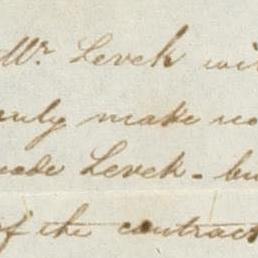 Mr. Levek wi
only make no
made Levek - bu
of the contract